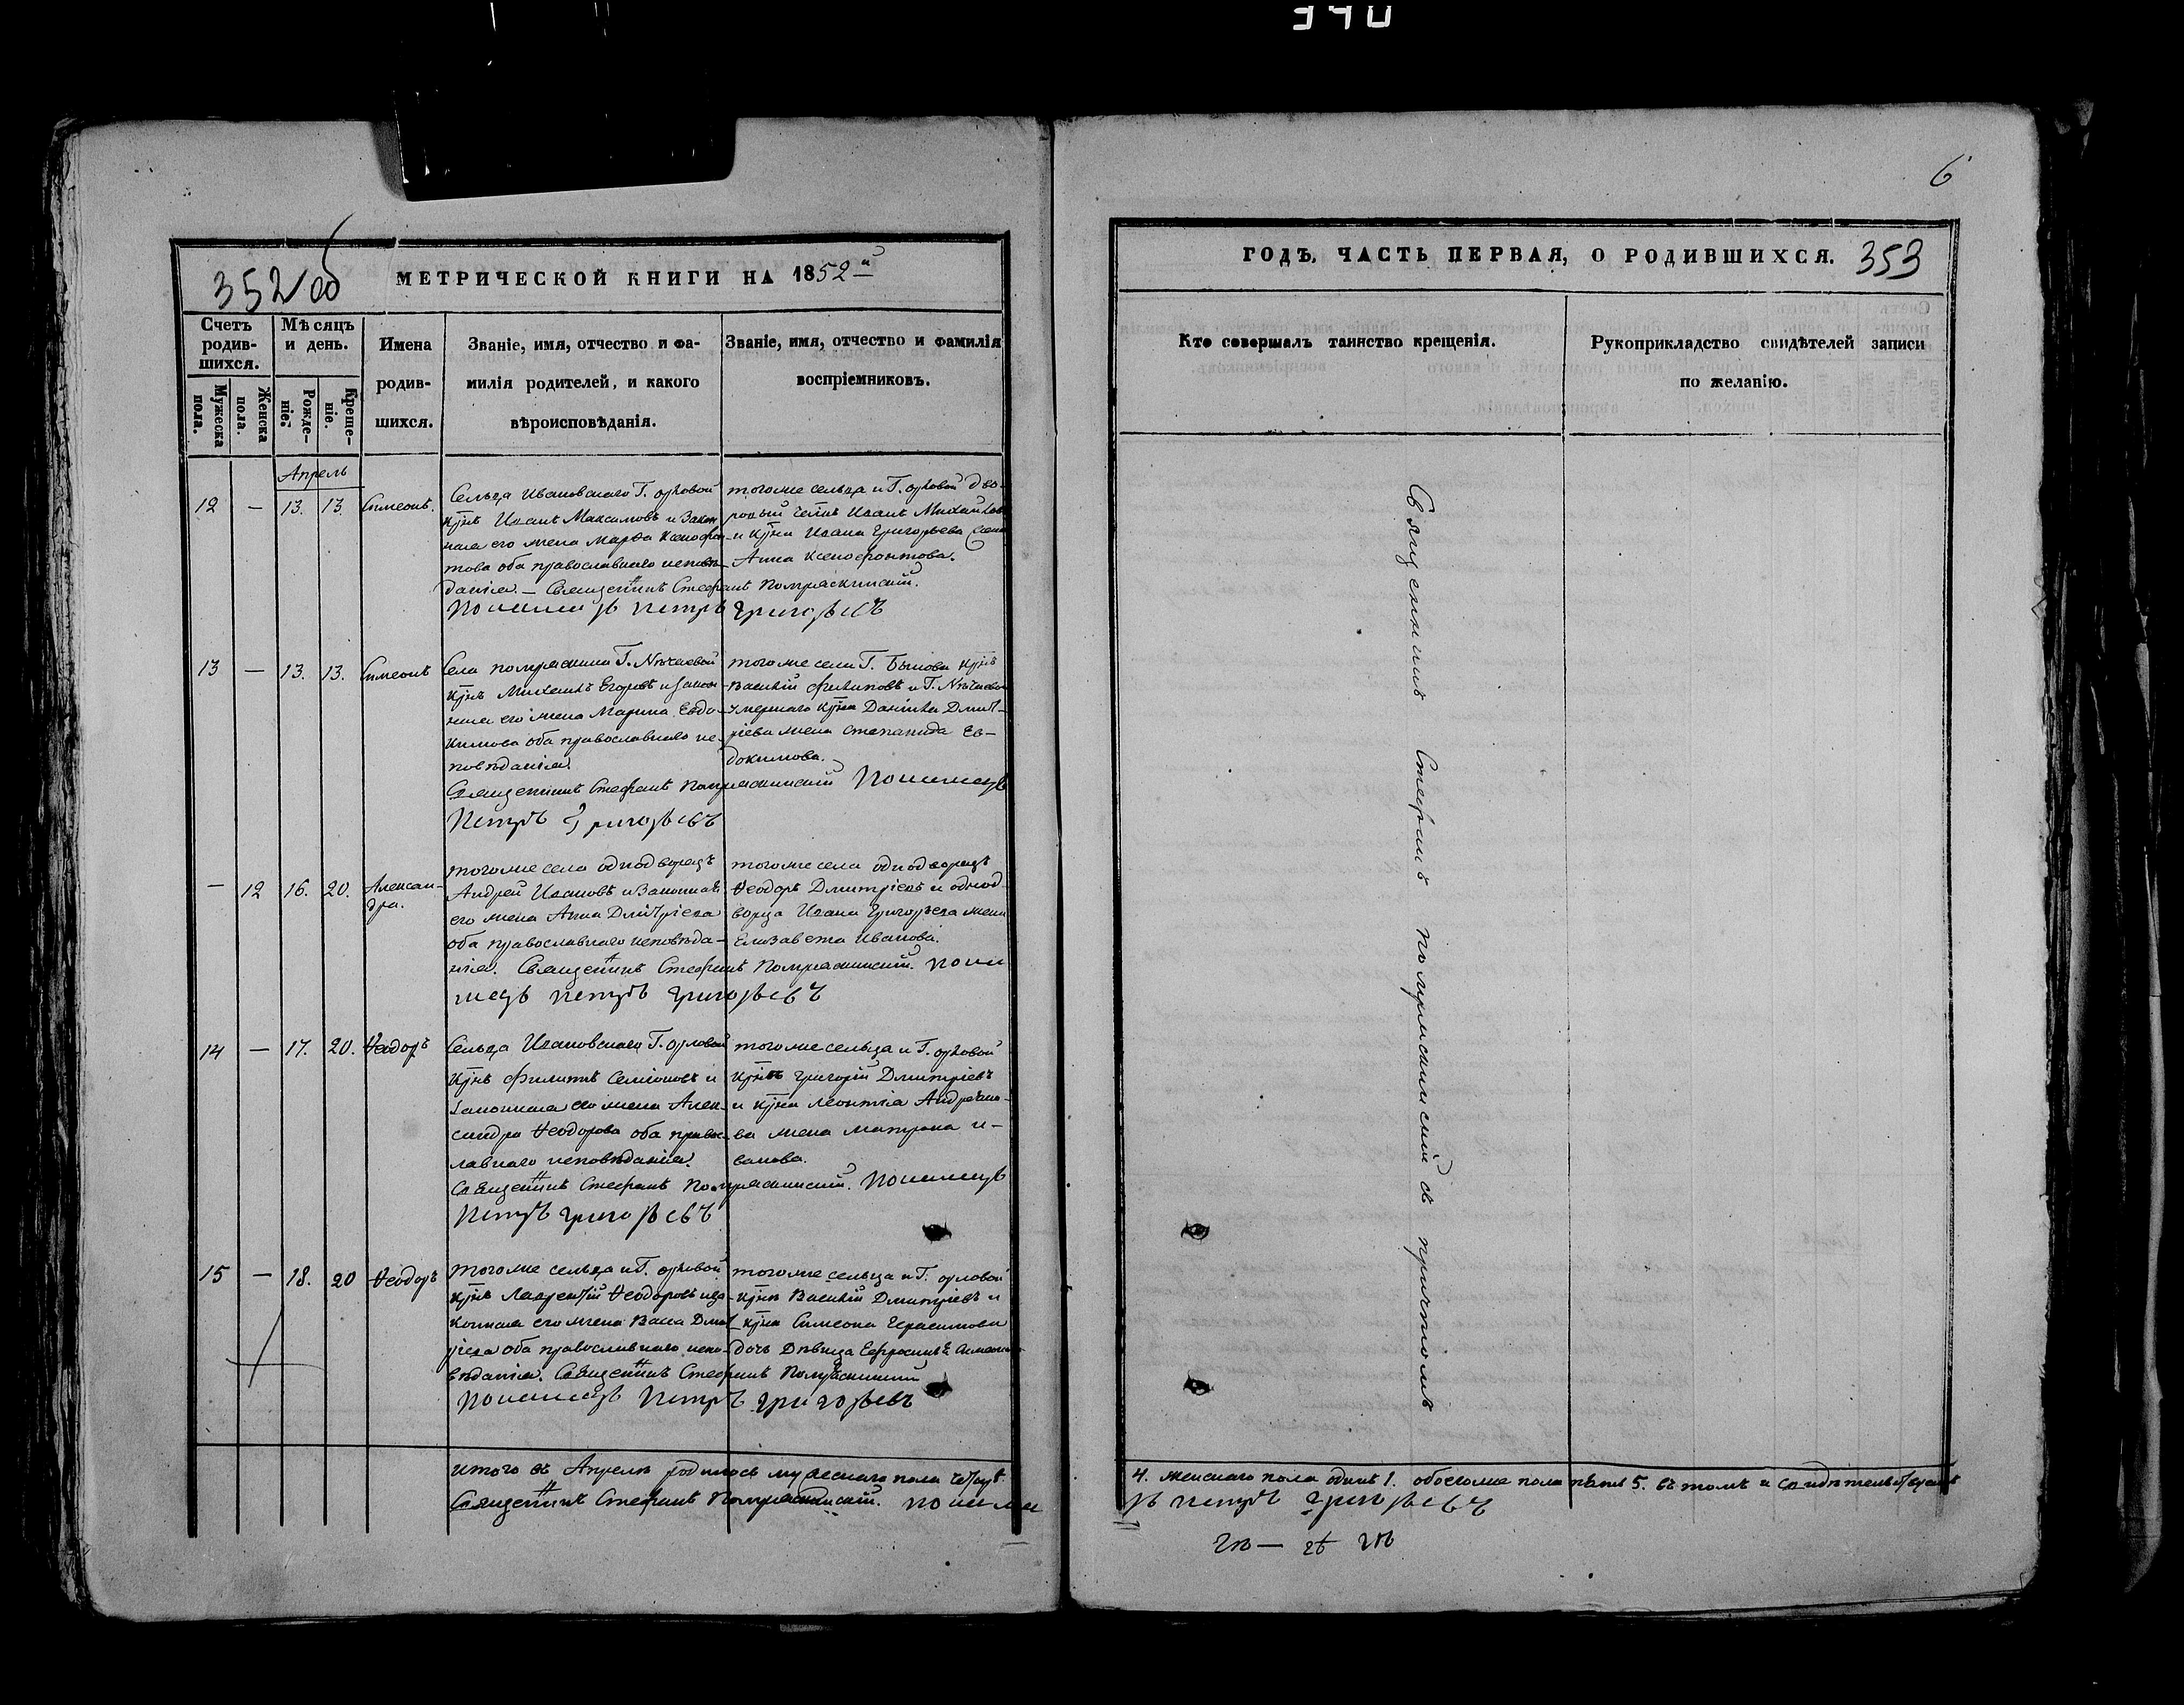 340
352 об
МЕТРИЧЕСКОЙ КНИГИ НА 1852 й
Счетъ родив-шихся.
Мужеска пола.
Женска пола.
Мѣсяцъ и день.
Рожде-ніе.
Креще-ніе.
Имена родив-шихся.
Званіе, имя, отчество и фа-
милія родителей, и какого
вѣроисповѣданія.
Званіе, имя, отчество и фамилія
воспріемниковъ.
Апрель
12 — 13. 13. Симеонъ.
Сельца Ивановскаго Г. Орловой
крнъ Иванъ Максимовъ и закон
ная его жена Марѳа Ксенофон
това оба православнаго исповѣ
данія. — Священникъ Стефанъ Полтряскинскій.
Пономарь Петръ Григорьевъ
тогоже сельца и Г. Орловой дво-
ровый Иванъ Михайлов
и крна Ивана Григорьева
Анна Ксенофонтова.
13 — 13. 13. Симеонъ
Села Г. Нѣчаевой
крнъ Михаилъ Егоровъ и закон
ная его жена Марина Евдо-
кимова оба православнаго ис-
повѣданія.
Священникъ Стефанъ
Петръ Григорьевъ
тогоже села Г. крнъ
Василій Филиповъ и Г. Нѣчаевой
умершаго крна Даніила Дмит-
ріева жена Степанида Ев-
докимова.
— 12 16. 20. Алексан-
дра.
тогоже села однодворецъ
Андрей Ивановъ и законная
его жена Анна Дмитріева
оба православнаго исповѣда-
нія. Священникъ Стефанъ
Петръ Григорьевъ
тогоже села однодворецъ
Ѳеодоръ Дмитріевъ и однод-
ворца Ивана Григорьева жена
Елизавета Иванова.
14 — 17. 20. Ѳеодоръ
Сельца Ивановскаго Г. Орловой
крнъ Филиппъ Семіоновъ и
законная его жена Алек-
сандра Ѳеодорова оба правос-
лавнаго исповѣданія.
Священникъ Стефанъ
Петръ Григорьевъ
тогоже сельца и Г. Орловой
крнъ Григорій Дмитріевъ
и крна Леонтія Андреяно-
ва жена Матрона И-
ванова.
15 — 18. 20 Ѳеодоръ
тогоже сельца и Г. Орловой
крнъ Лаврентій Ѳеодоровъ и за-
конная его жена Васса Дмит
ріева оба православнаго испо-
вѣданія. Священникъ Стефанъ
Петръ Григорьевъ
тогоже сельца и Г. Орловой
крнъ Василій Дмитріевъ и
крна Симеона Герасимова
дочь дѣвица Ефросинья
итого въ Апрелѣ родилось мужескаго пола четыре
Священникъ Стефанъ
6
ГОДЪ, ЧАСТЬ ПЕРВАЯ, О РОДИВШИХСЯ. 353
Кто совершалъ таинство крещенія.
Рукоприкладство свидѣтелей записи
по желанію.
Священникъ Стефанъ съ причтомъ
4. женскаго пола одинъ 1. обоегоже пола пять 5. въ томъ и свидѣтельствуемъ
Петръ Григорьевъ